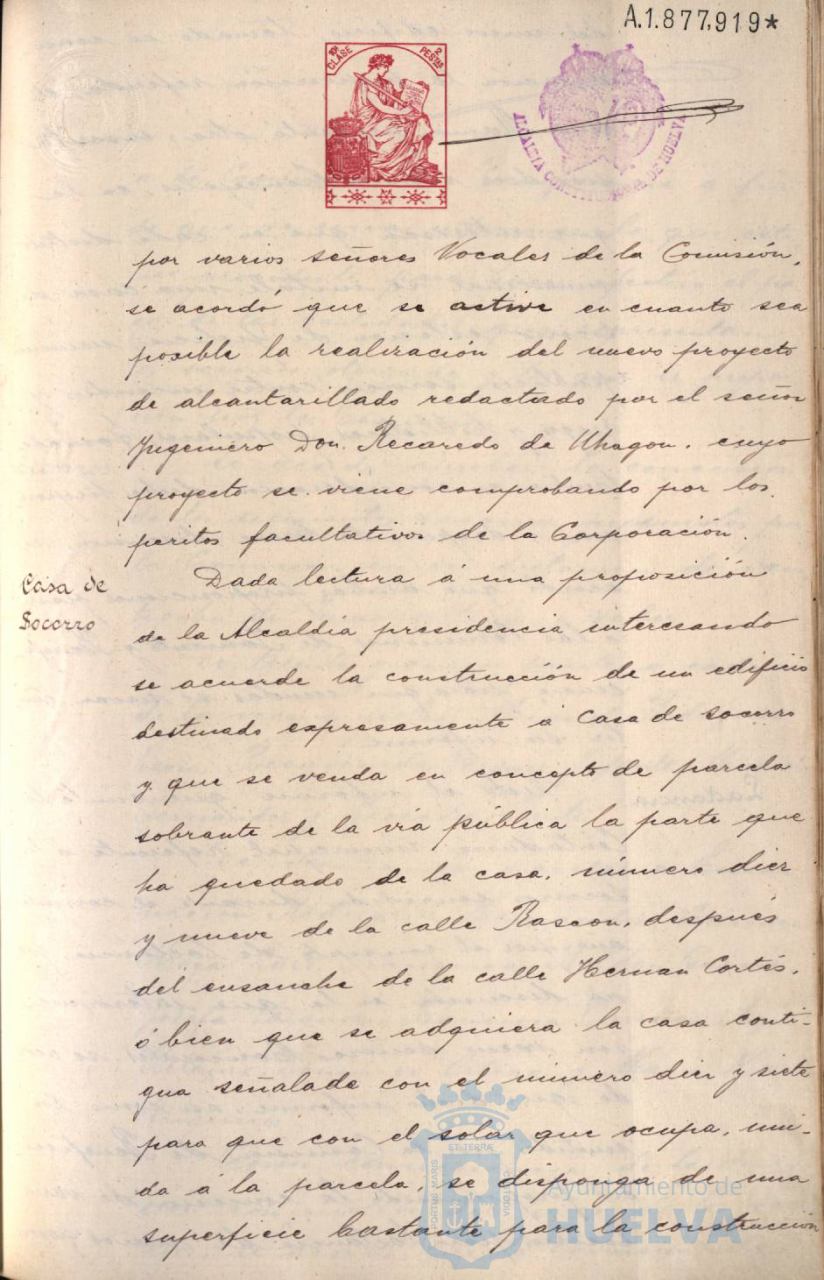 A.1.877,919*
10ª CLASE 2 PESTAS
ALCALDIA CONSTITUCIONAL DE HUELVA
por varios señores Vocales de la Comisión,
se acordó que se active en cuanto sea
posible la realización del nuevo proyecto
de alcantarillado redactado por el señor
Ingeniero Don. Recaredo de Uhagon. cuyo
proyecto se viene comprobando por los
peritos facultativos de la Corporación.
Casa de
Socorro
Dada lectura á una proposición
de la Alcaldía presidencia interesando
se acuerde la construcción de un edificio
destinado expresamente á Casa de socorro
y que se venda en concepto de parcela
sobrante de la vía pública la parte que
ha quedado de la casa, número diez
y nueve de la calle Rascon, después
del ensanche de la calle Hernan Cortés,
ó bien que se adquiera la casa conti-
gua señalada con el número diez y siete
para que con el solar que ocupa, uni-
da á la parcela, se disponga de una
superficie bastante para la construcción
PORTUS MARIS ET TERRÆ CUSTODIA
Ayuntamiento de
HUELVA